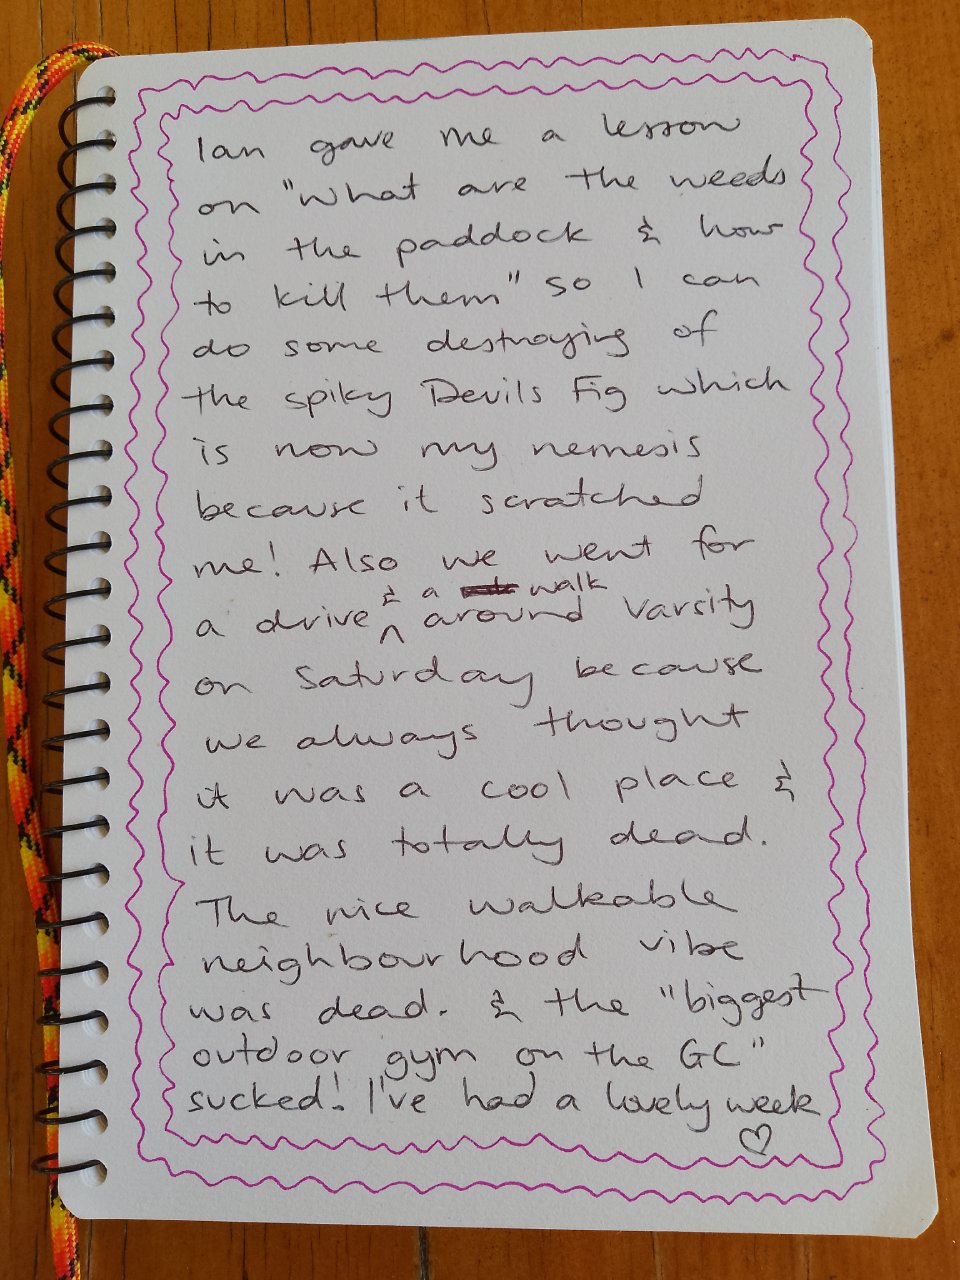 Ian gave me a lesson
on "what are the weeds
in the paddock & how
to kill them" so I can
do some destroying of
the spiky Devils Fig which
is now my nemesis
because it scratched
me! Also we went for
& a walk
a drive ^ around Varsity
on Saturday because
we always thought
it was a cool place &
it was totally dead.
The nice walkable
neighbourhood vibe
was dead. & the "biggest
outdoor gym on the GC"
sucked! I've had a lovely week
♡